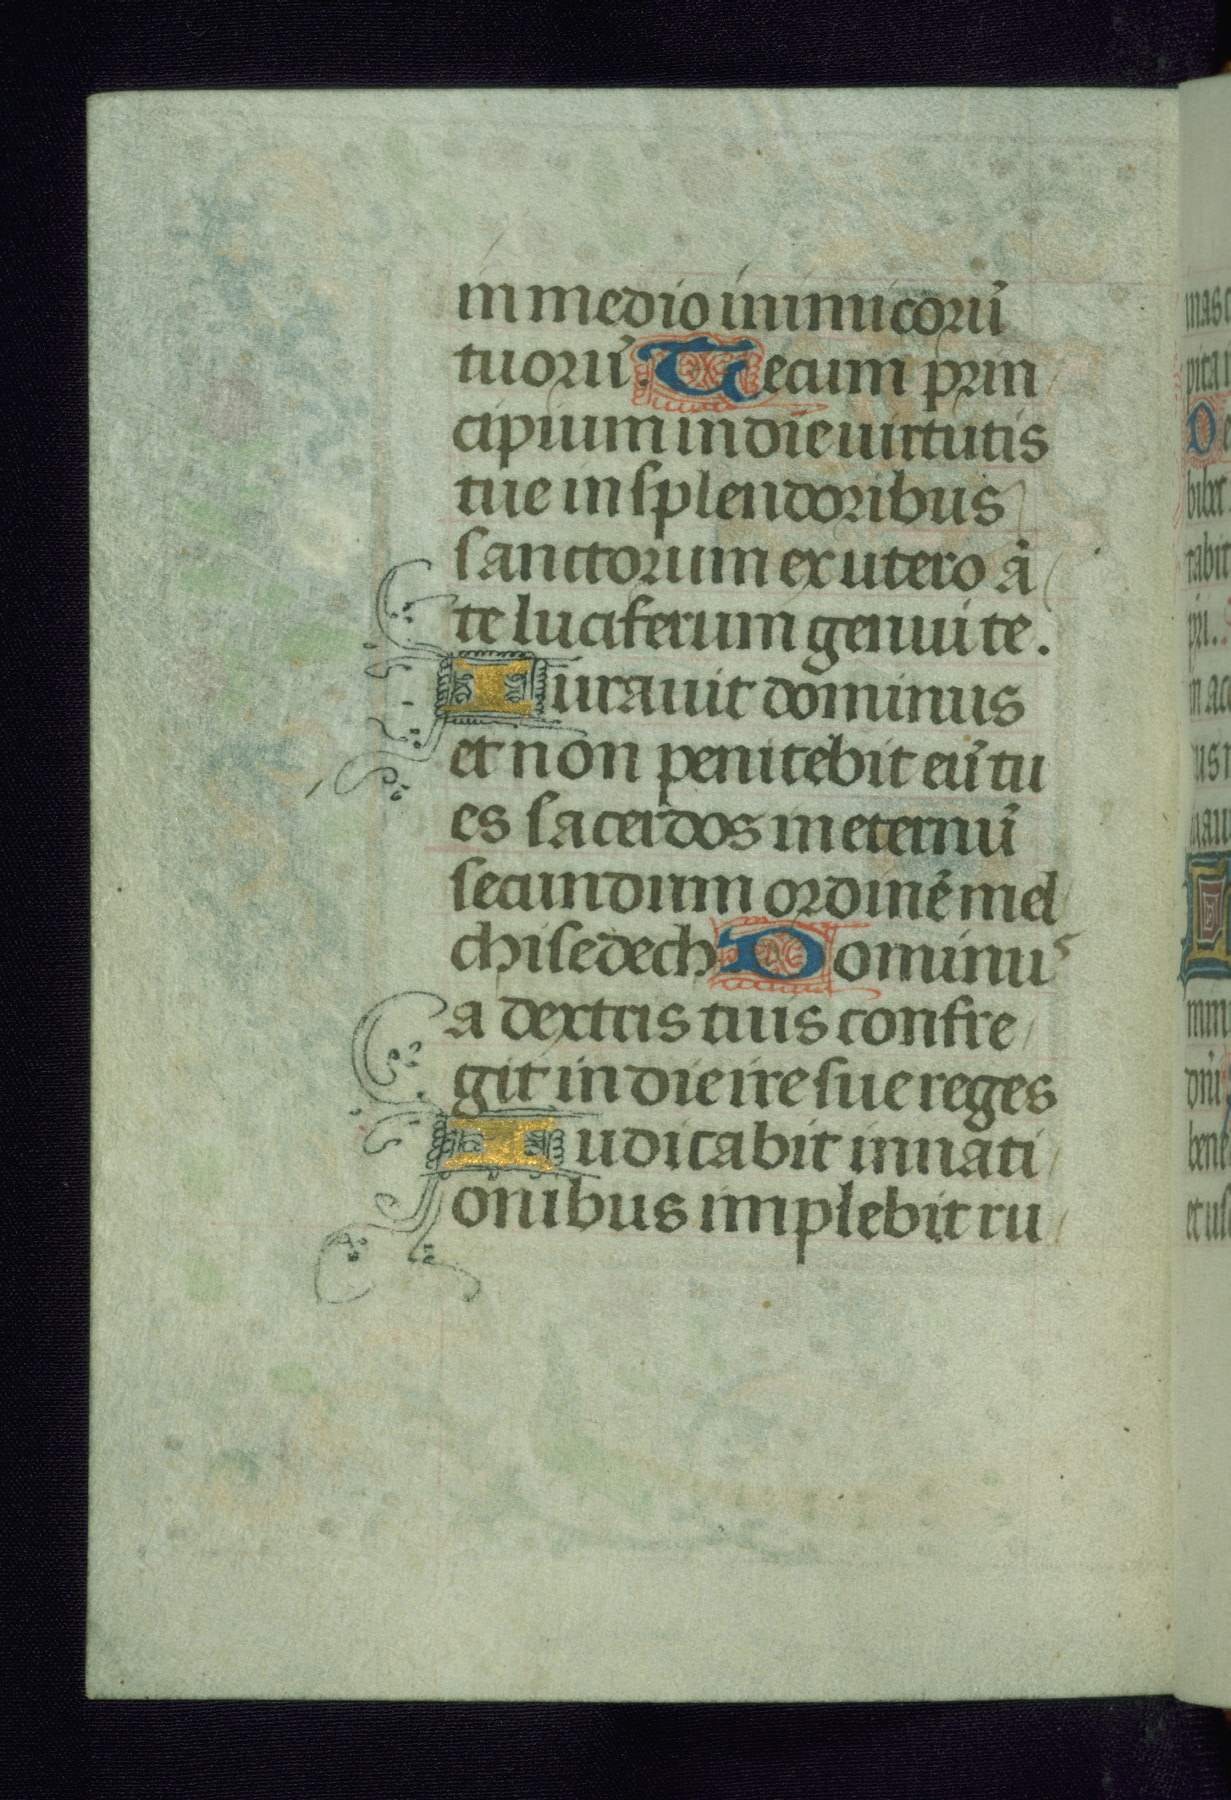 in medio inimicorū
tuorū. Tecum prin
cipium in die uirtutis
tue in splendoribus
sanctorum ex utero ā
te luciferum genui te.
Iurauit dominus
et non penitebit eū tu
es sacerdos in eternū
secundum ordinē mel
chisedech Dominus
a dextris tuis confre
git in die ire sue reges
Iudicabit in nati
onibus implebit ru